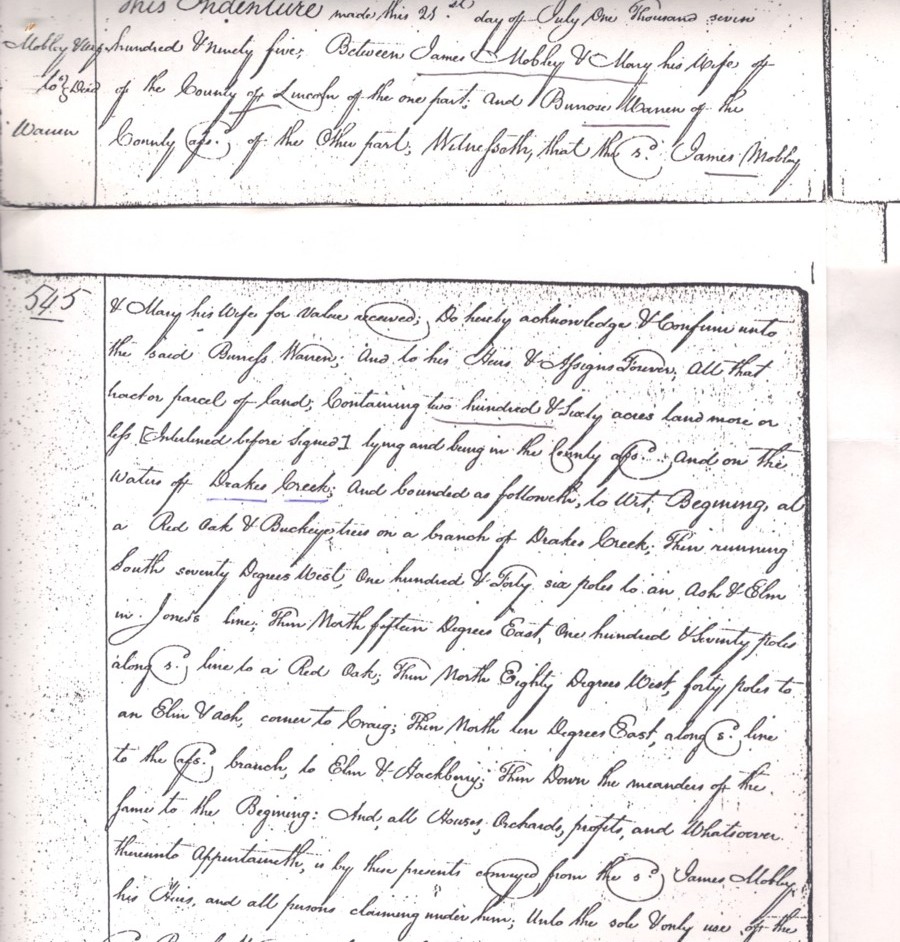 This Indenture made this 21st day of July One Thousand seven
Mobley &
hundred & Ninety five; Between James Mobley & Mary his Wife of
to } Deed
of the County of Lincoln of the one part; and Buness Warren of the
Warren
County afs.d; of the Other part; Witnesseth, that the s.d James Mobley
545
& Mary his Wife for value received; Do hereby acknowledge & Confirm unto
the said Buness Warren; And to his Heirs & Assigns Forever, All that
tract or parcel of land; Containing two hundred & Sixty acres land more or
less [Interlined before Signed] lying and being in the County afs.d And on the
Waters of Drakes Creek; And bounded as followeth, to Wit, Begining, at
a Red Oak & Buckeye trees on a branch of Drakes Creek; Then running
South seventy Degrees West, One hundred & Forty six poles to an Ash & Elm
in Jones's line; Then North fifteen Degrees East, One hundred & Seventy poles
along s.d line to a Red Oak; Then North Eighty Degrees West, forty poles to
an Elm & ash, corner to Craig; Then North ten Degrees East, along s.d line
to the afs.d branch, to Elm & Hackberry; Then Down the meanders of the
same to the Begining: And, all Houses, Orchards, profits, and Whatsoever
thereunto Appertaineth, is by these presents conveyed from the s.d James Mobley,
his Heirs, and all persons claiming under him; Unto the sole & only use of the